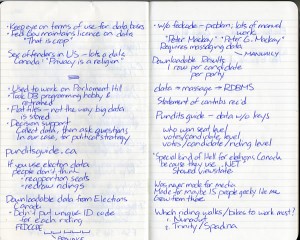 • Keep eye on terms of use for data bases
• Fed Gov maintains licence on data
"That is crap"
Sex offenders in US - lots a data
Canada: "Privacy is a religion"
• Used to work on Parliament Hill
• Took DB programming hobby &
retrained
• Flat files - not the way big data
is stored
• Decision support
Collect data, then ask questions
In our case, for political strategy
punditsguide.ca
If you use election data
people don't think
• reapportion seats
• redraw ridings
Downloadable data from Elections
Canada
• Didn't put unique ID code
for each riding
FEDCODE
• w/o fedcode - problem; lots of manual
work
"Peter Mackay" "Peter G. Mackay"
Requires massaging data
MANUALLY
Downloadable Results
1 row per candidate
per party
data → massage → RDBMS
Statement of
Pundits guide - data w/o keys
who won seat level
votes/candidate level
votes/candidate/riding level
• Special kind of Hell for elections Canada
because they use .NET
• Stored Viewstate
Was never made for media
Made for maybe 15 people geeky like me
Grew from there
Which riding walks/bikes to work most?
1.
2. Trinity/Spadina